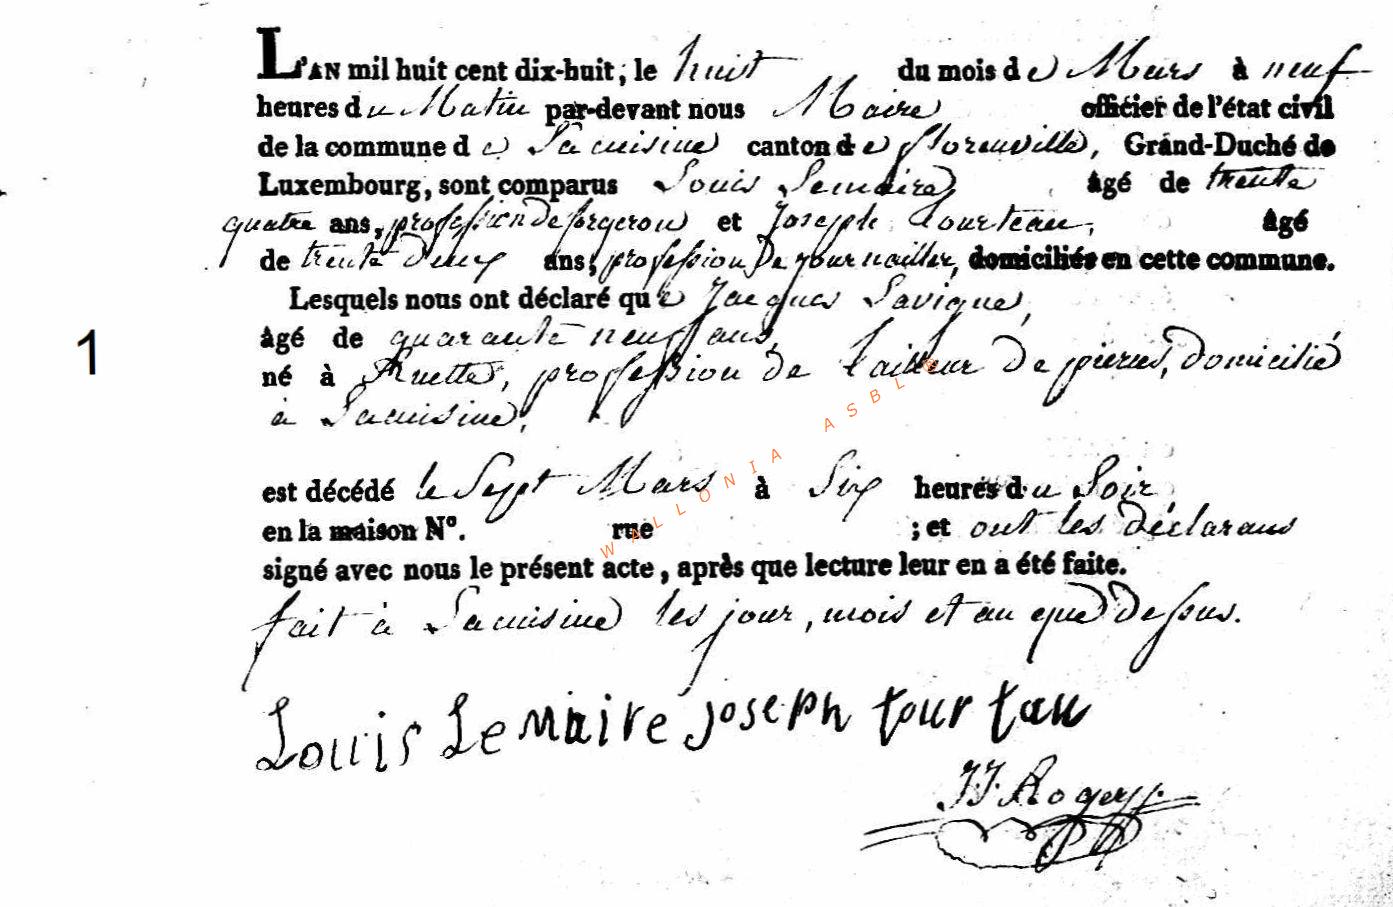 L'AN mil huit cent dix-huit, le huit du mois de Mars à neuf
heures du Matin par-devant nous Maire officier de l'état civil
de la commune de Lacuisine canton de florenville, Grand-Duché de
Luxembourg, sont comparus Louis Lemaire, âgé de trente
quatre ans, profession de forgeron et Joseph Tourteau, âgé
de trente deux ans, profession De journallier, domiciliés en cette commune.
Lesquels nous ont déclaré que Jacques Lavigne,
1
âgé de quarante neuf ans,
né à Ruette, profession de tailleur De pierres, domicilié
à Lacuisine,
est décédé le Sept Mars à Six heures du Soir
en la maison Nº. rue ; et ont les déclarans
signé avec nous le présent acte, après que lecture leur en a été faite.
fait à Lacuisine les jour, mois et an que Dessus.
Louis Lemaire joseph tourtau
J.J. Roger
WALLONIA ASBL